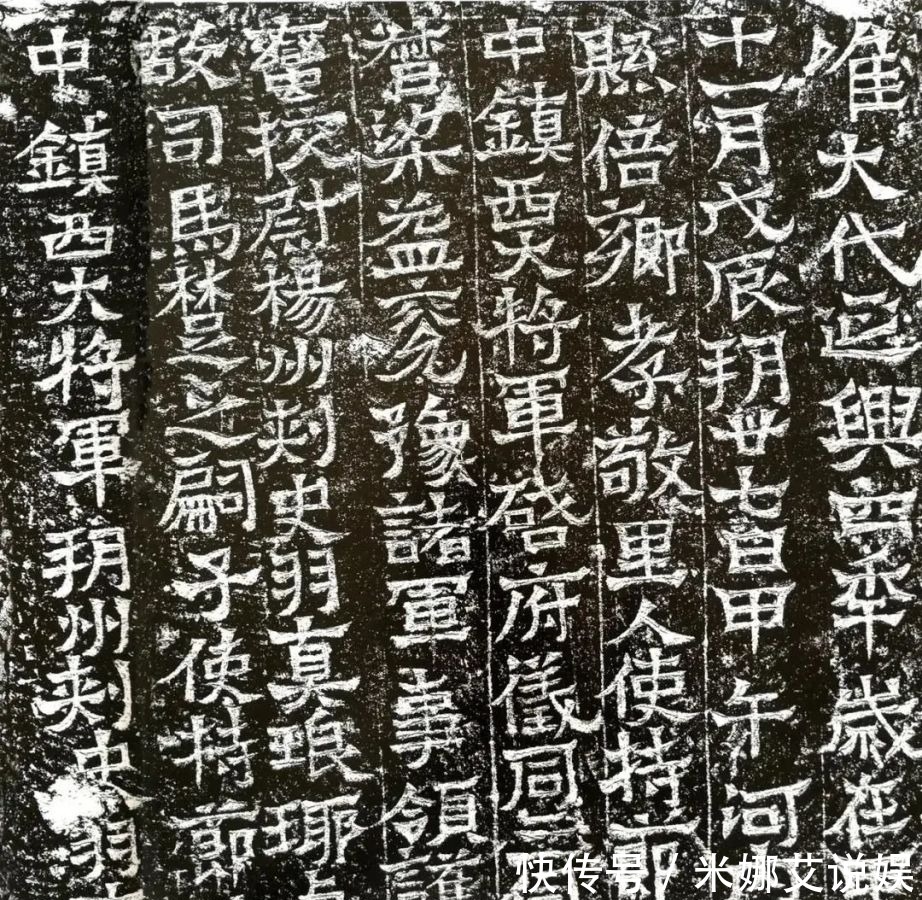 唯大代延興四年歲在
十一月戊辰朔廿七日甲午河
縣倍鄉孝敬里人使持節
中鎮西大將軍啓府儀同三
督梁益兗豫諸軍事領護
蠻校尉楊州刺史羽真琅琊
故司馬楚之嗣子使持節
中鎮西大將軍朔州刺史羽
快传号/米娜艾说娱